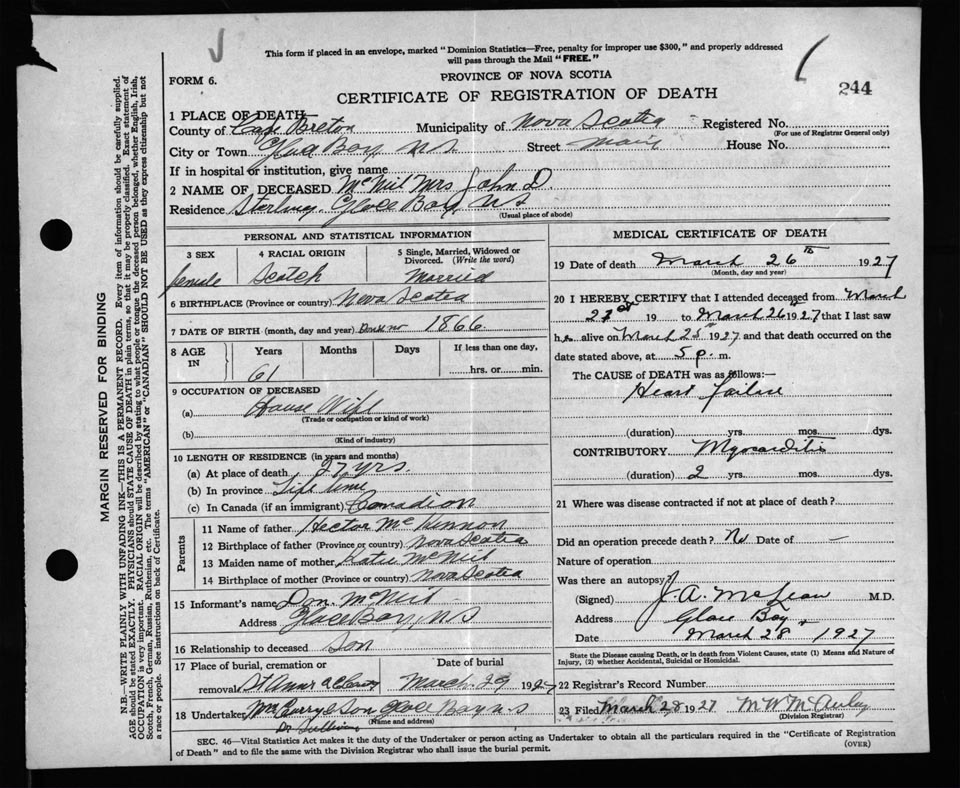 This form if placed in an envelope, marked "Dominion Statistics—Free, penalty for improper use $300," and properly addressed
will pass through the Mail "FREE."
FORM 6.
PROVINCE OF NOVA SCOTIA
244
CERTIFICATE OF REGISTRATION OF DEATH
1 PLACE OF DEATH—
County of Cape Breton Municipality of Nova Scotia Registered No.
(For use of Registrar General only)
City or Town Glace Bay NS Street Main House No.
If in hospital or institution, give name
2 NAME OF DECEASED McNeil Mrs John D.
Residence Sterling. Glace Bay, NS
(Usual place of abode)
PERSONAL AND STATISTICAL INFORMATION
3 SEX 4 RACIAL ORIGIN 5 Single, Married, Widowed or
Divorced. (Write the word)
female Scotch Married
6 BIRTHPLACE (Province or country) Nova Scotia
7 DATE OF BIRTH (month, day and year) 1866
8 AGE IN Years Months Days If less than one day,
61 hrs. or min.
9 OCCUPATION OF DECEASED
(a) House Wife
(Trade or occupation or kind of work)
(b)
(Kind of industry)
10 LENGTH OF RESIDENCE (in years and months)
(a) At place of death 27 yrs.
(b) In province Life time
(c) In Canada (if an immigrant) Canadian
Parents
11 Name of father Hector McKinnon
12 Birthplace of father (Province or country) Nova Scotia
13 Maiden name of mother Katie McNeil
14 Birthplace of mother (Province or country) Nova Scotia
15 Informant's name Don. McNeil
Address Glace Bay, NS
16 Relationship to deceased Son
17 Place of burial, cremation or Date of burial
removal St Anns March 29 1927
18 Undertaker McCurry & Son Glace Bay N-S
(Name and address)
Dr Sullivan
MEDICAL CERTIFICATE OF DEATH
19 Date of death March 26th 1927
(Month, day and year)
20 I HEREBY CERTIFY that I attended deceased from March
21st 19 to March 26 1927 that I last saw
her alive on March 25th 1927 and that death occurred on
date stated above, at 5 p. m.
The CAUSE of DEATH was as follows:—
Heart failure
(duration) yrs. mos. dys.
CONTRIBUTORY Myocarditis
(duration) 2 yrs. mos. dys.
21 Where was disease contracted if not at place of death?
Did an operation precede death? No Date of —
Nature of operation
Was there an autopsy?
(Signed) J. A. McLean M.D.
Address Glace Bay
Date March 28 1927
State the Disease causing Death, or in death from Violent Causes, state (1) Means and Nature of
Injury, (2) whether Accidental, Suicidal or Homicidal.
22 Registrar's Record Number
23 Filed March 28 1927 M W McAuley
(Division Registrar)
SEC. 46—Vital Statistics Act makes it the duty of the Undertaker or person acting as Undertaker to obtain all the particulars required in the "Certificate of Registration
of Death" and to file the same with the Division Registrar who shall issue the burial permit.
(OVER)
MARGIN RESERVED FOR BINDING
N.B.—WRITE PLAINLY WITH UNFADING INK—THIS IS A PERMANENT RECORD. Every item of information should be carefully supplied.
AGE should be stated EXACTLY. PHYSICIANS should STATE CAUSE OF DEATH in plain terms, so that it may be properly classified. Exact statement of
OCCUPATION is very important. RACIAL ORIGIN will be described by stating to what people or tongue the deceased person belonged, whether English, Irish,
Scotch, French, German, Russian, Ruthenian, etc. The terms "AMERICAN" or "CANADIAN" SHOULD NOT BE USED as they express citizenship but not
a race or people. See instructions on back of Certificate.